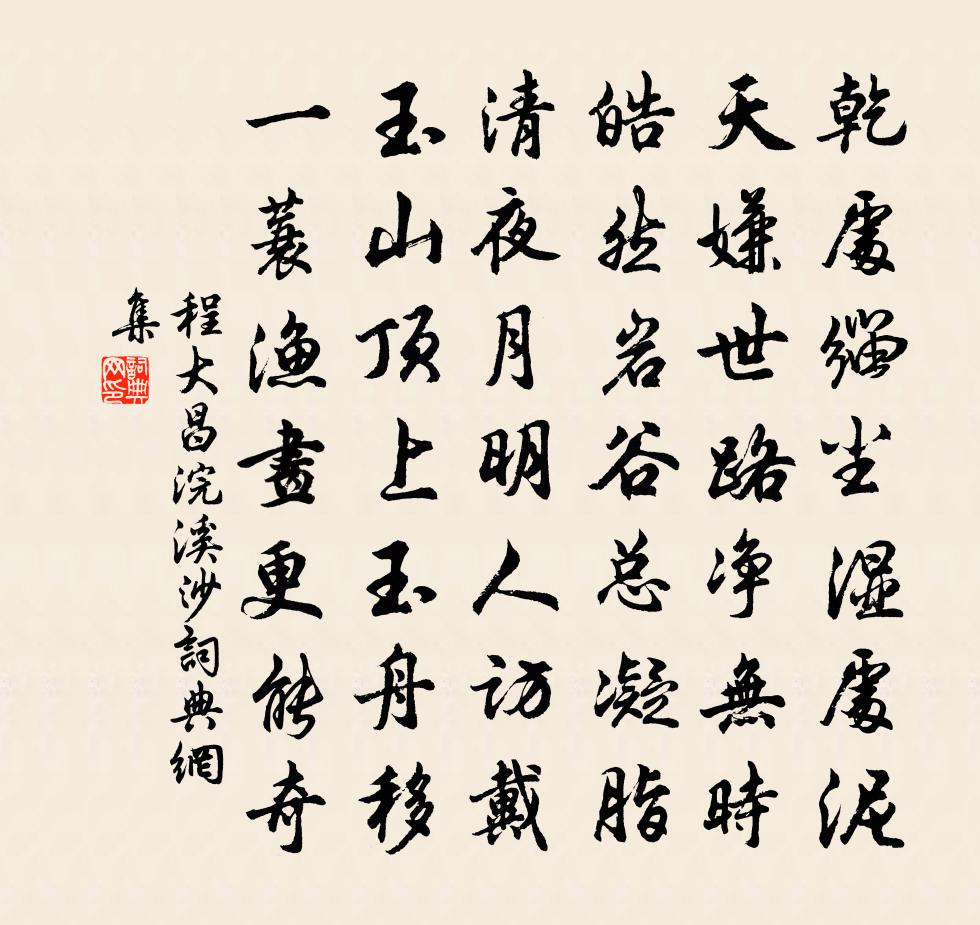 乾處緇尘濕處泥
天嫌世路净無時
皓然岩谷总凝脂
清夜月明人访戴
玉山顶上玉舟移
一蓑渔畫更能奇
程大昌浣溪沙詞典網
集
詞典网印